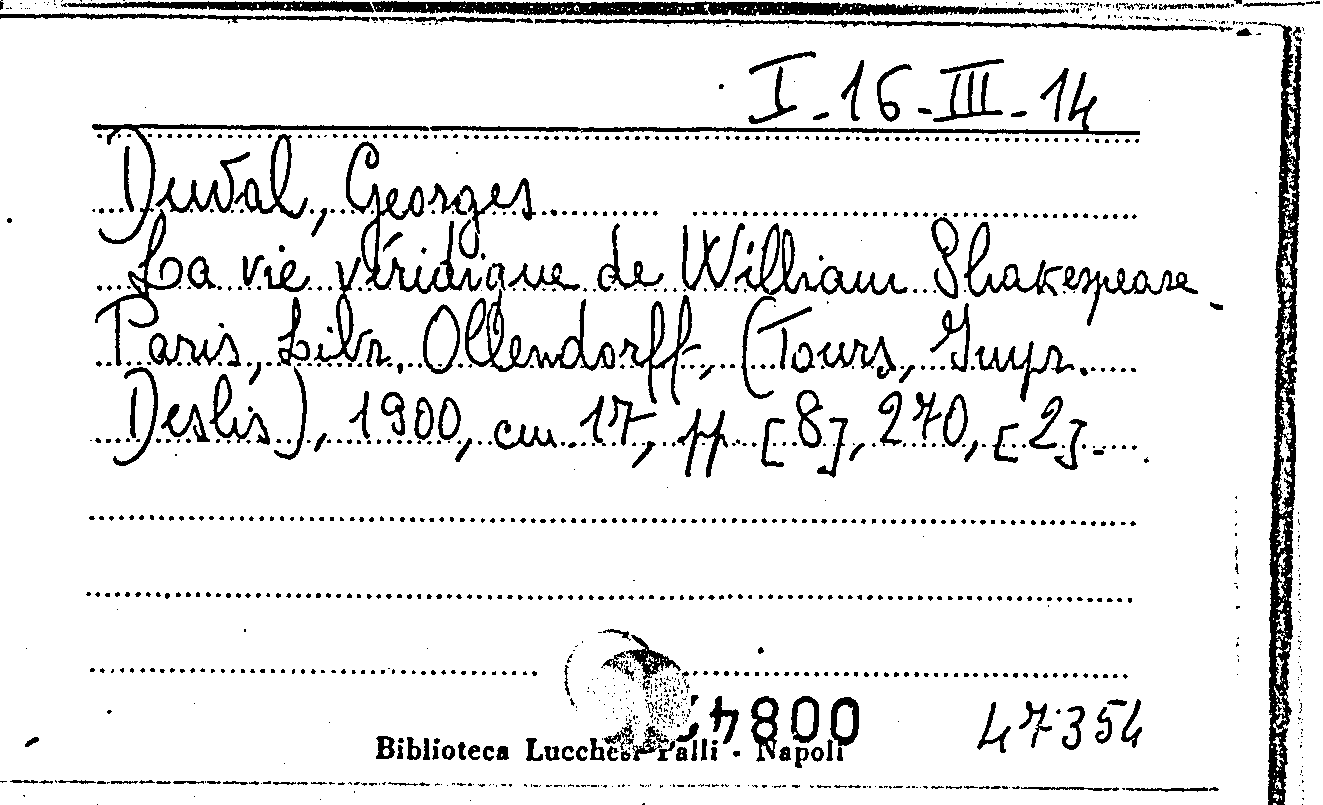 I-16-III-14
Duval, Georges
La vie véridique de William Shakespeare.
Paris, Libr. Ollendorff, (Tours, Impr.
Deslis), 1900, cm 17, pp [8], 270, [2].
47354
Biblioteca Lucchesi Palli - Napoli